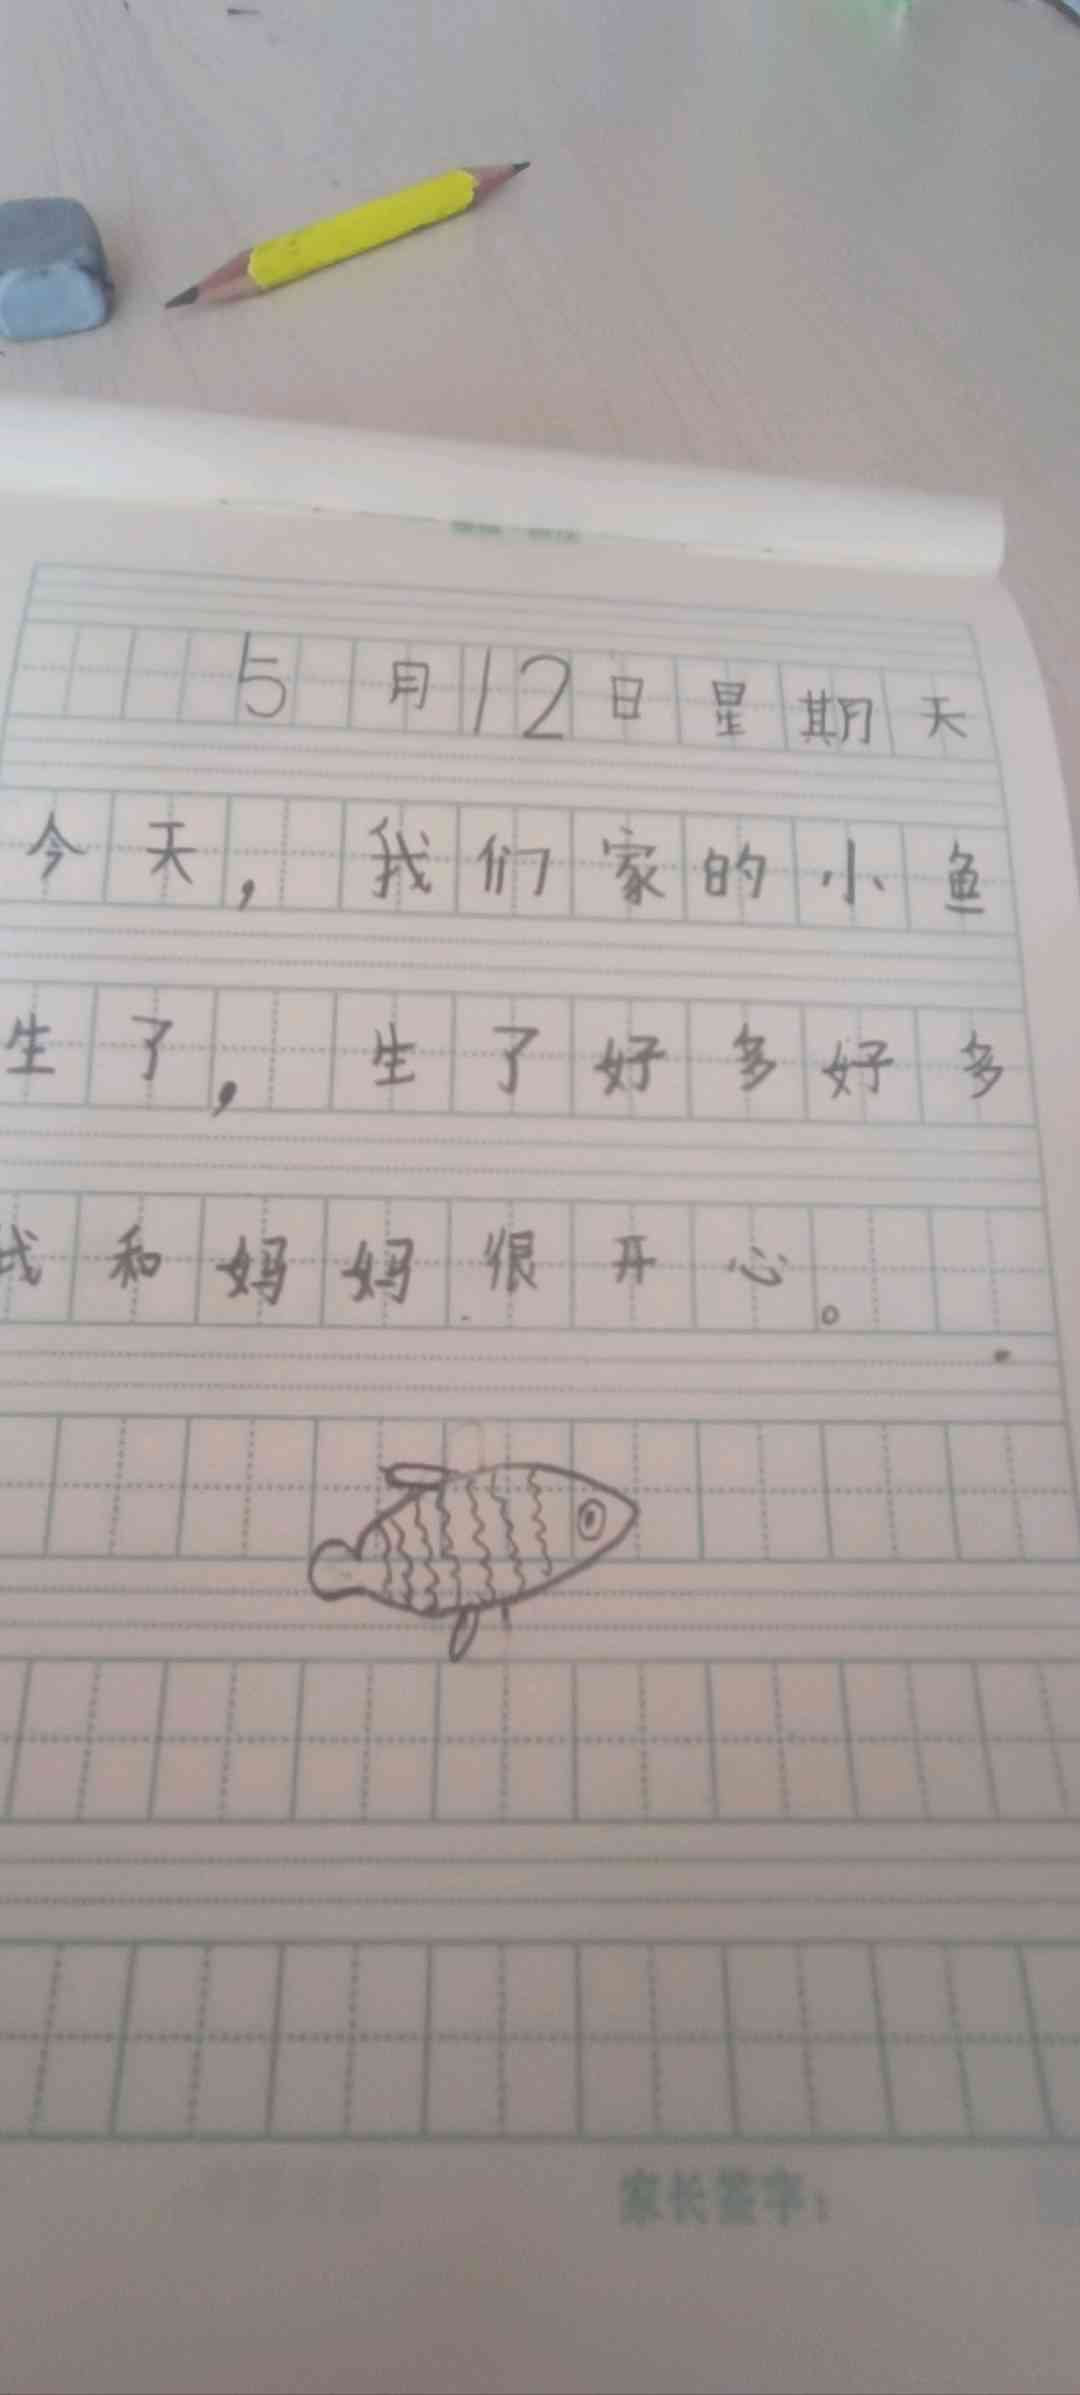 5月12日星期天
今天，我们家的小鱼
生了，生了好多好多
我和妈妈很开心。
家长签字：